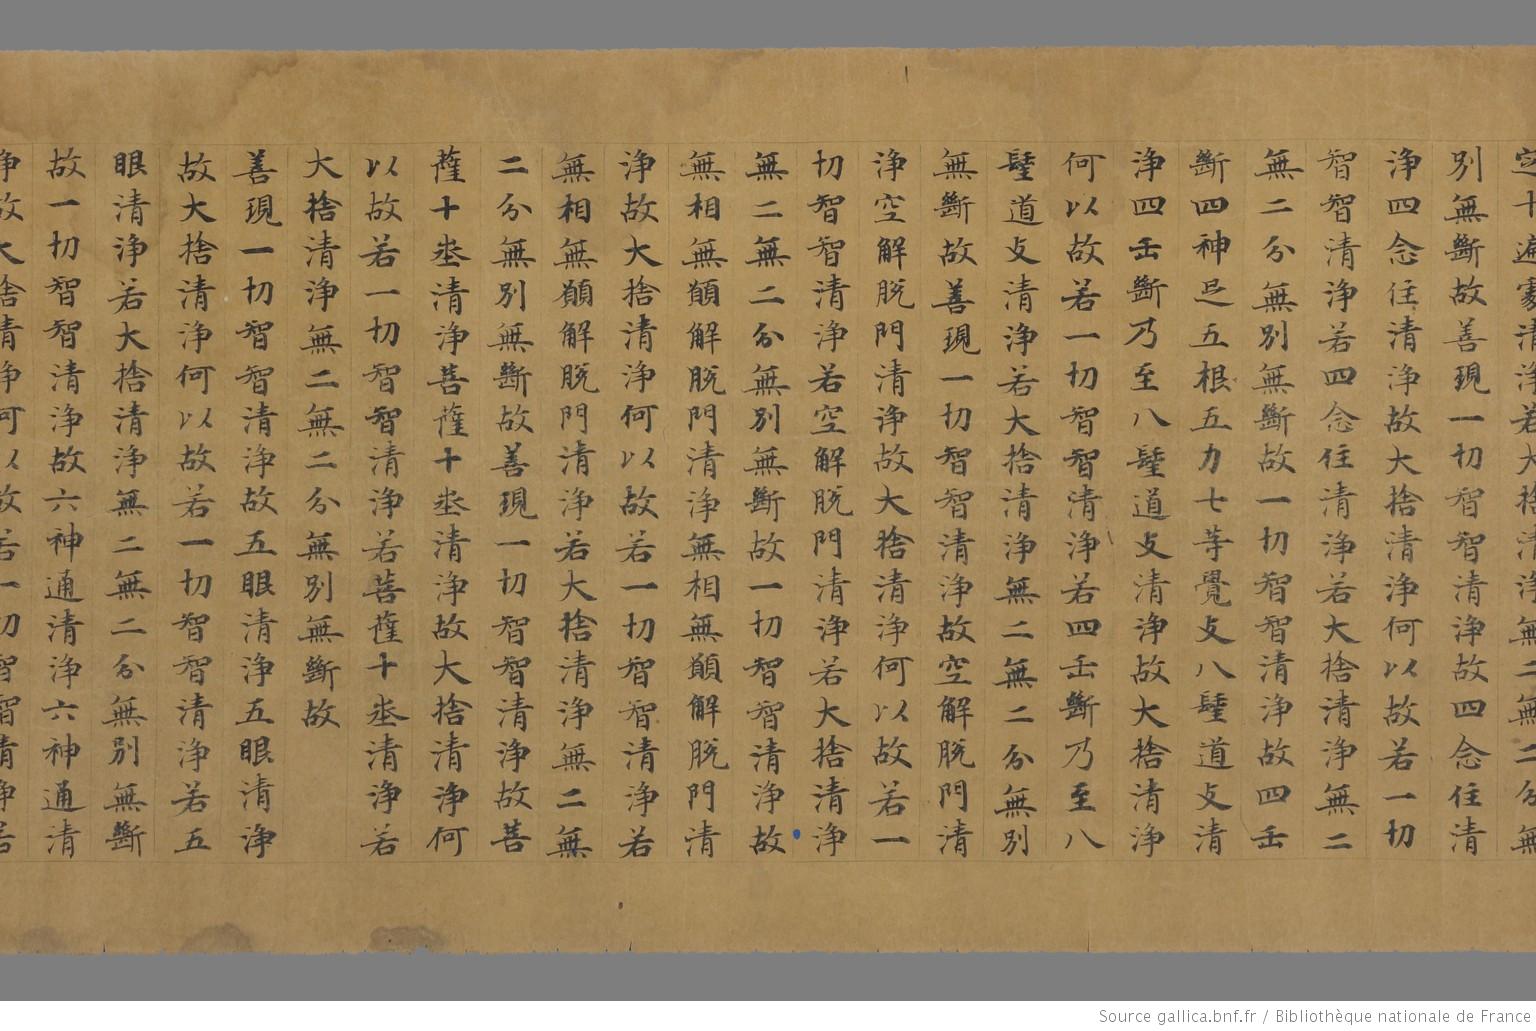 定十遍處清淨若大捨清淨無二無二分無
別無斷故善現一切智智清淨故四念住清
淨四念住清淨故大捨清淨何以故若一切
智智清淨若四念住清淨若大捨清淨無二
無二分無別無斷故一切智智清淨故四㱏
斷四神足五根五力七等覺支八聖道支清
淨四㱏斷乃至八聖道支清淨故大捨清淨
何以故若一切智智清淨若四㱏斷乃至八
聖道支清淨若大捨清淨無二無二分無別
無斷故善現一切智智清淨故空解脫門清
淨空解脫門清淨故大捨清淨何以故若一
切智智清淨若空解脫門清淨若大捨清淨
無二無二分無別無斷故一切智智清淨故
無相無願解脫門清淨無相無願解脫門清
淨故大捨清淨何以故若一切智智清淨若
無相無願解脫門清淨若大捨清淨無二無
二分無別無斷故善現一切智智清淨故菩
薩十地清淨菩薩十地清淨故大捨清淨何
以故若一切智智清淨若菩薩十地清淨若
大捨清淨無二無二分無別無斷故
善現一切智智清淨故五眼清淨五眼清淨
故大捨清淨何以故若一切智智清淨若五
眼清淨若大捨清淨無二無二分無別無斷
故一切智智清淨故六神通清淨六神通清
淨故大捨清淨何以故若一切智智清淨若
Source gallica.bnf.fr / Bibliothèque nationale de France